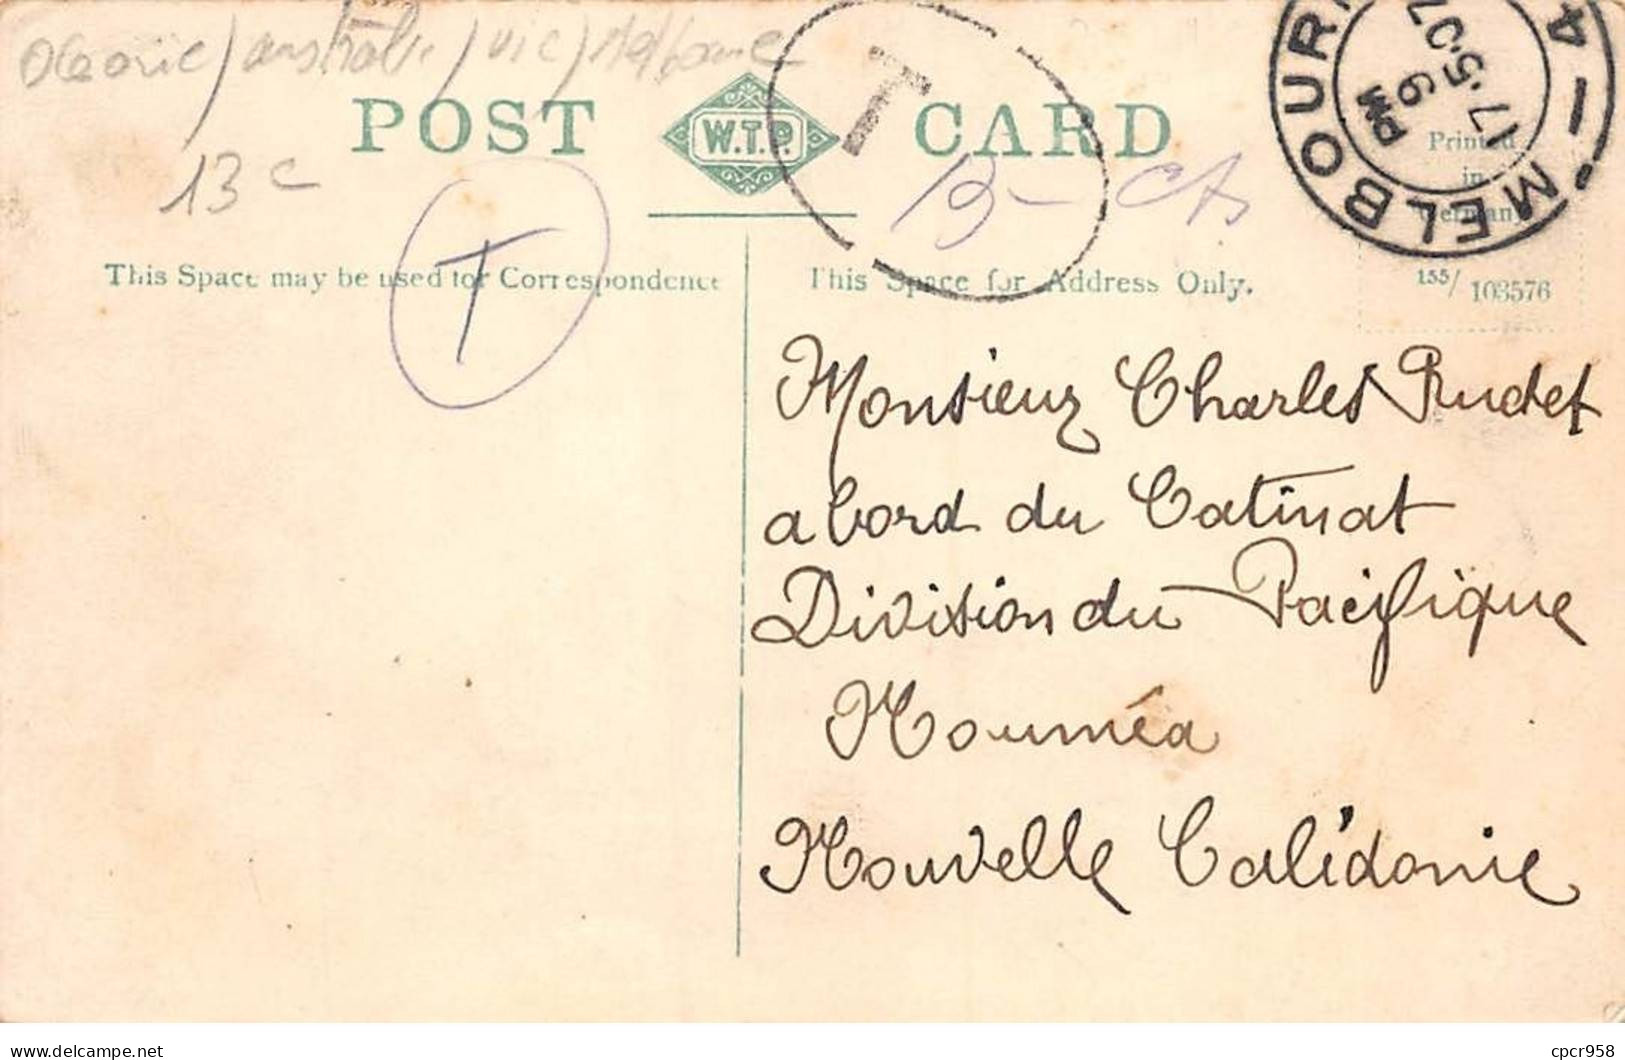 Océanie / australie / vic / Melbourne
POST W.T.P. CARD
T
13 c
13 - cts
T
MELBOUR
6 PM
17·5·07
4
Printed
in
Germany
155/103576
This Space may be used for Correspondence
This Space for Address Only.
Monsieur Charles Rudet
a bord du Catinat
Division du Pacifique
Nouméa
Nouvelle Calédonie
cpcr958